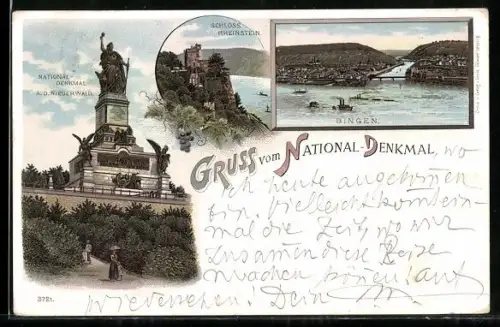 SCHLOSS
RHEINSTEIN.
NATIONAL-
DENKMAL
A. D. NIEDERWALD.
BINGEN.
GRUSS vom NATIONAL-DENKMAL, wo
ich heute angekommen
bin. Vielleicht kommt ein-
mal die Zeit, wo wir
zusammen diese Reise
machen können! Auf
Wiedersehen. Dein
372t.